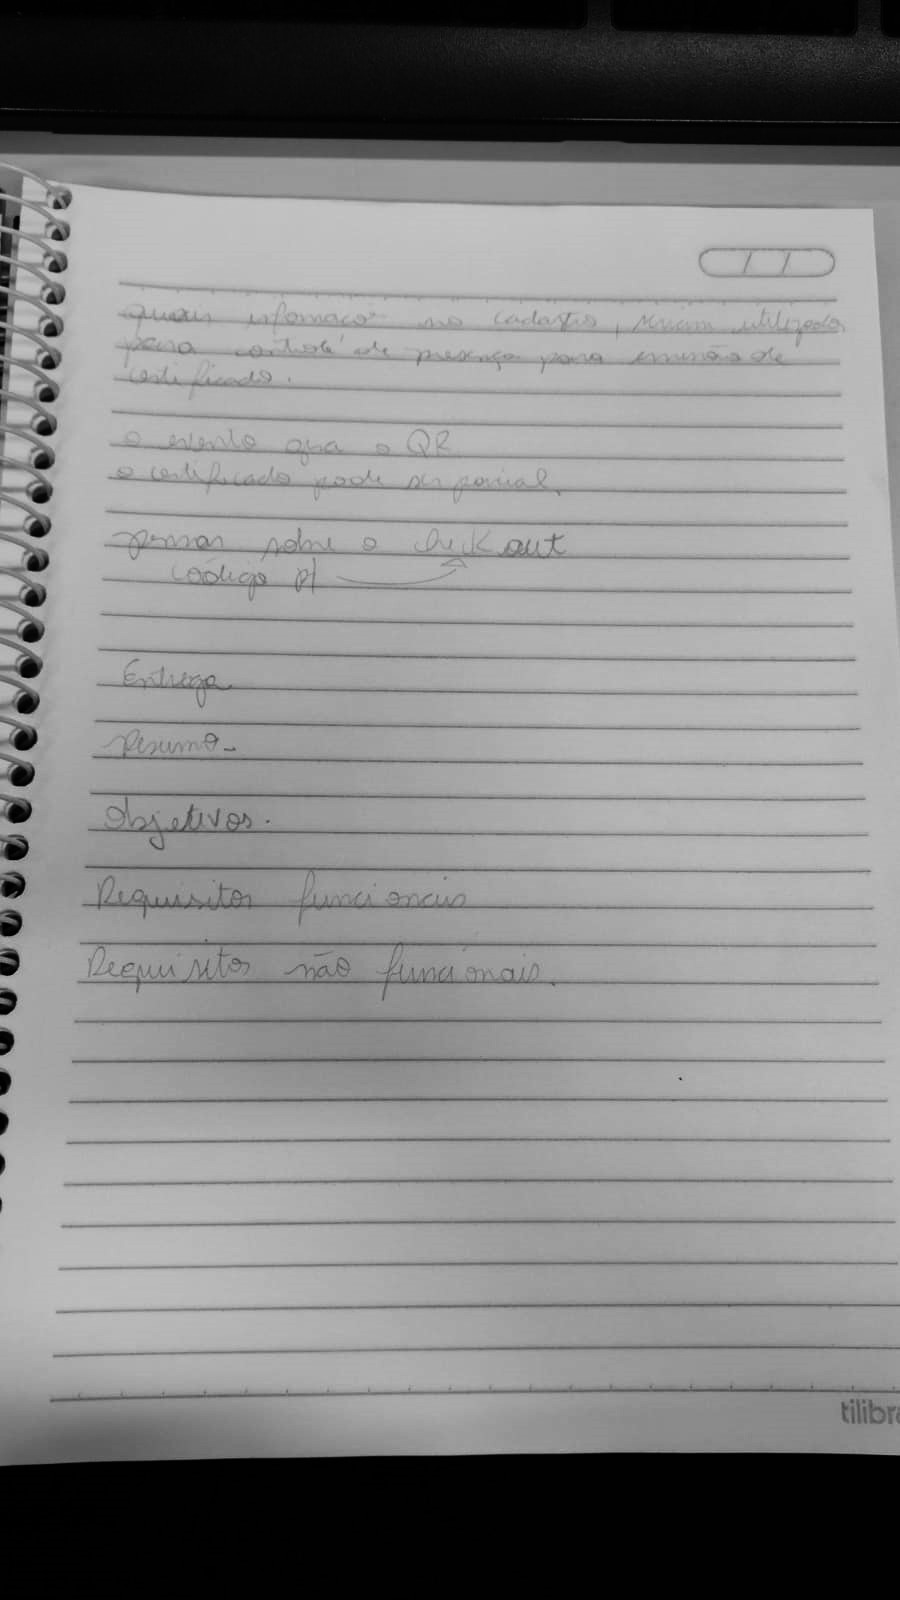 quais informacoe no cadastro, seriam utilizados
para controle de presença para emissão de
certificado.
o evento gera o QR
o certificado pode ser parcial.
pensar sobre o check out
código p/
Entrega
resumo
Objetivos.
Requisitos funcionais
Requisitos não funcionais.
tilibra